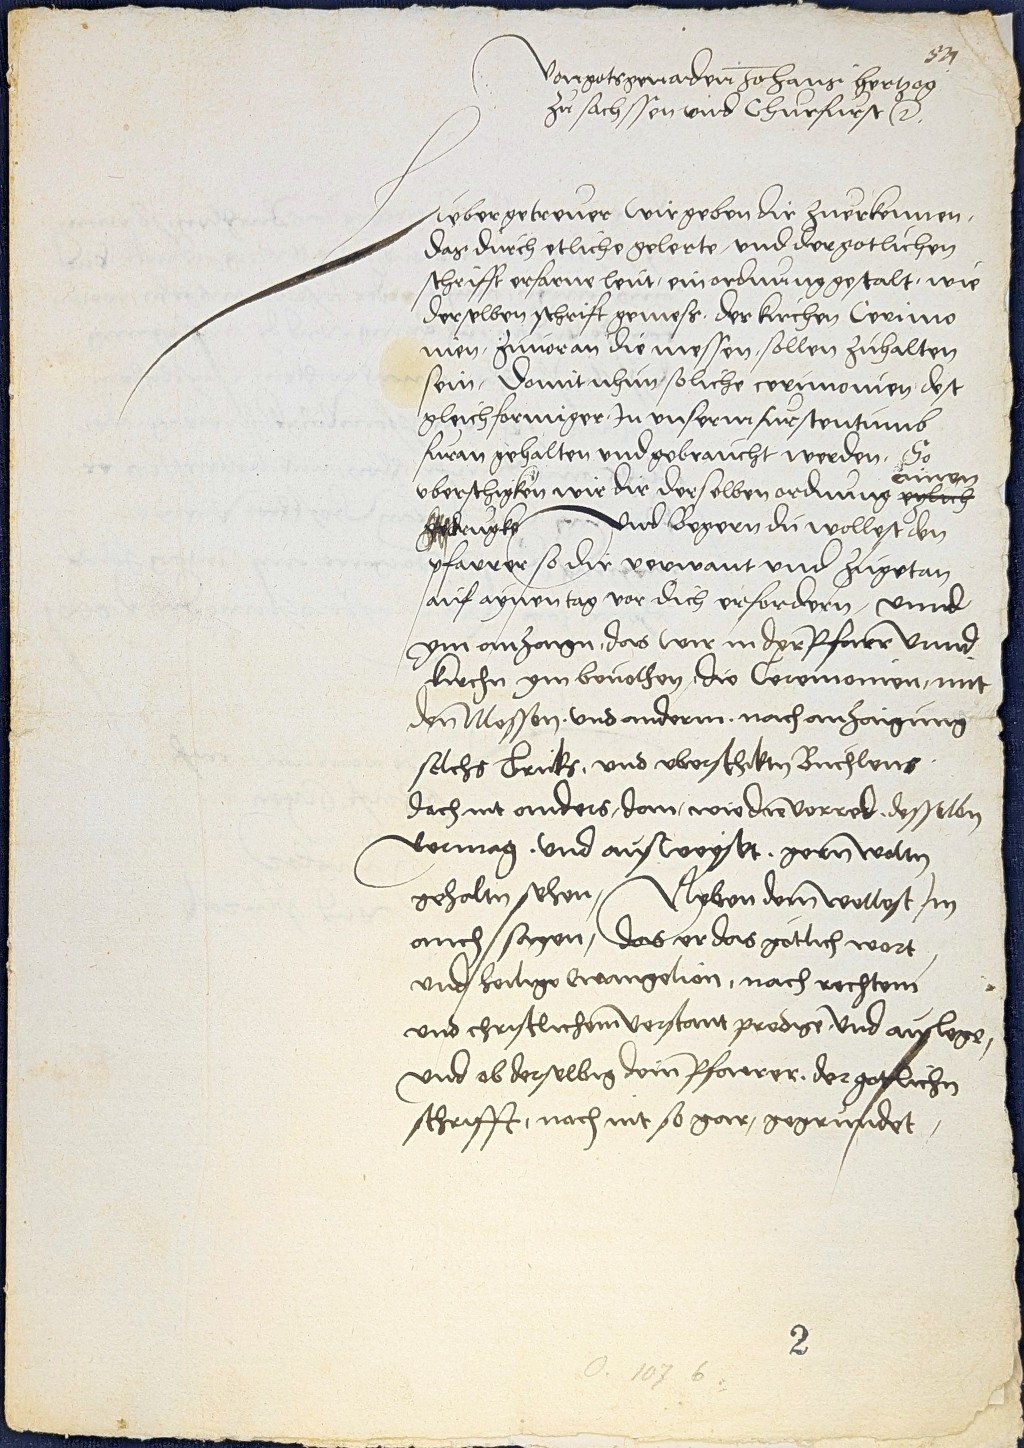 54
Von gots genaden Johans hertzog
zu sachssen und Churfurst
Lieber getreuer wir geben dir zuerkennen,
das durch etliche gelerte und der gotlichen
schrifft erfarne leut, ein ordnung gestalt, wie
derselben schrift gemess, der kirchen Cerimo
nien, zuuoran die messen, sollen zuhalten
sein, Domit nhun soliche cerimonien dest
gleichformiger In unserm furstentumb
furan gehalten und gebraucht werden, So
ainen
uberschigken wir dir derselben ordnung
und Begern du wollest den
pfarrer so dir verwant und zugetan
auf aynen tag vor dich erfordern, unnd
ym anzaign, das wir in der Pfarr unnd
kirchn ym beuolhen, die Ceremonien, mit
den Messen, und anderm, nach anzaigung
solchs Truks, und uberschiktn Buchlens
doch nit anders, dan, wie die Vorred, desselbn
vermag, und ausweyset, gern woltn
gehaltn sehen, Neben dem wollest im
auch sagen, das er das gotlich wort
und heilige Ewangelion, nach rechtem
und christlichem verstant predige und auslege,
und ob derselbig dein Pfarrer, der gotlichn
schrifft, noch nit so gar, gegrundet,
2
O. 107 6